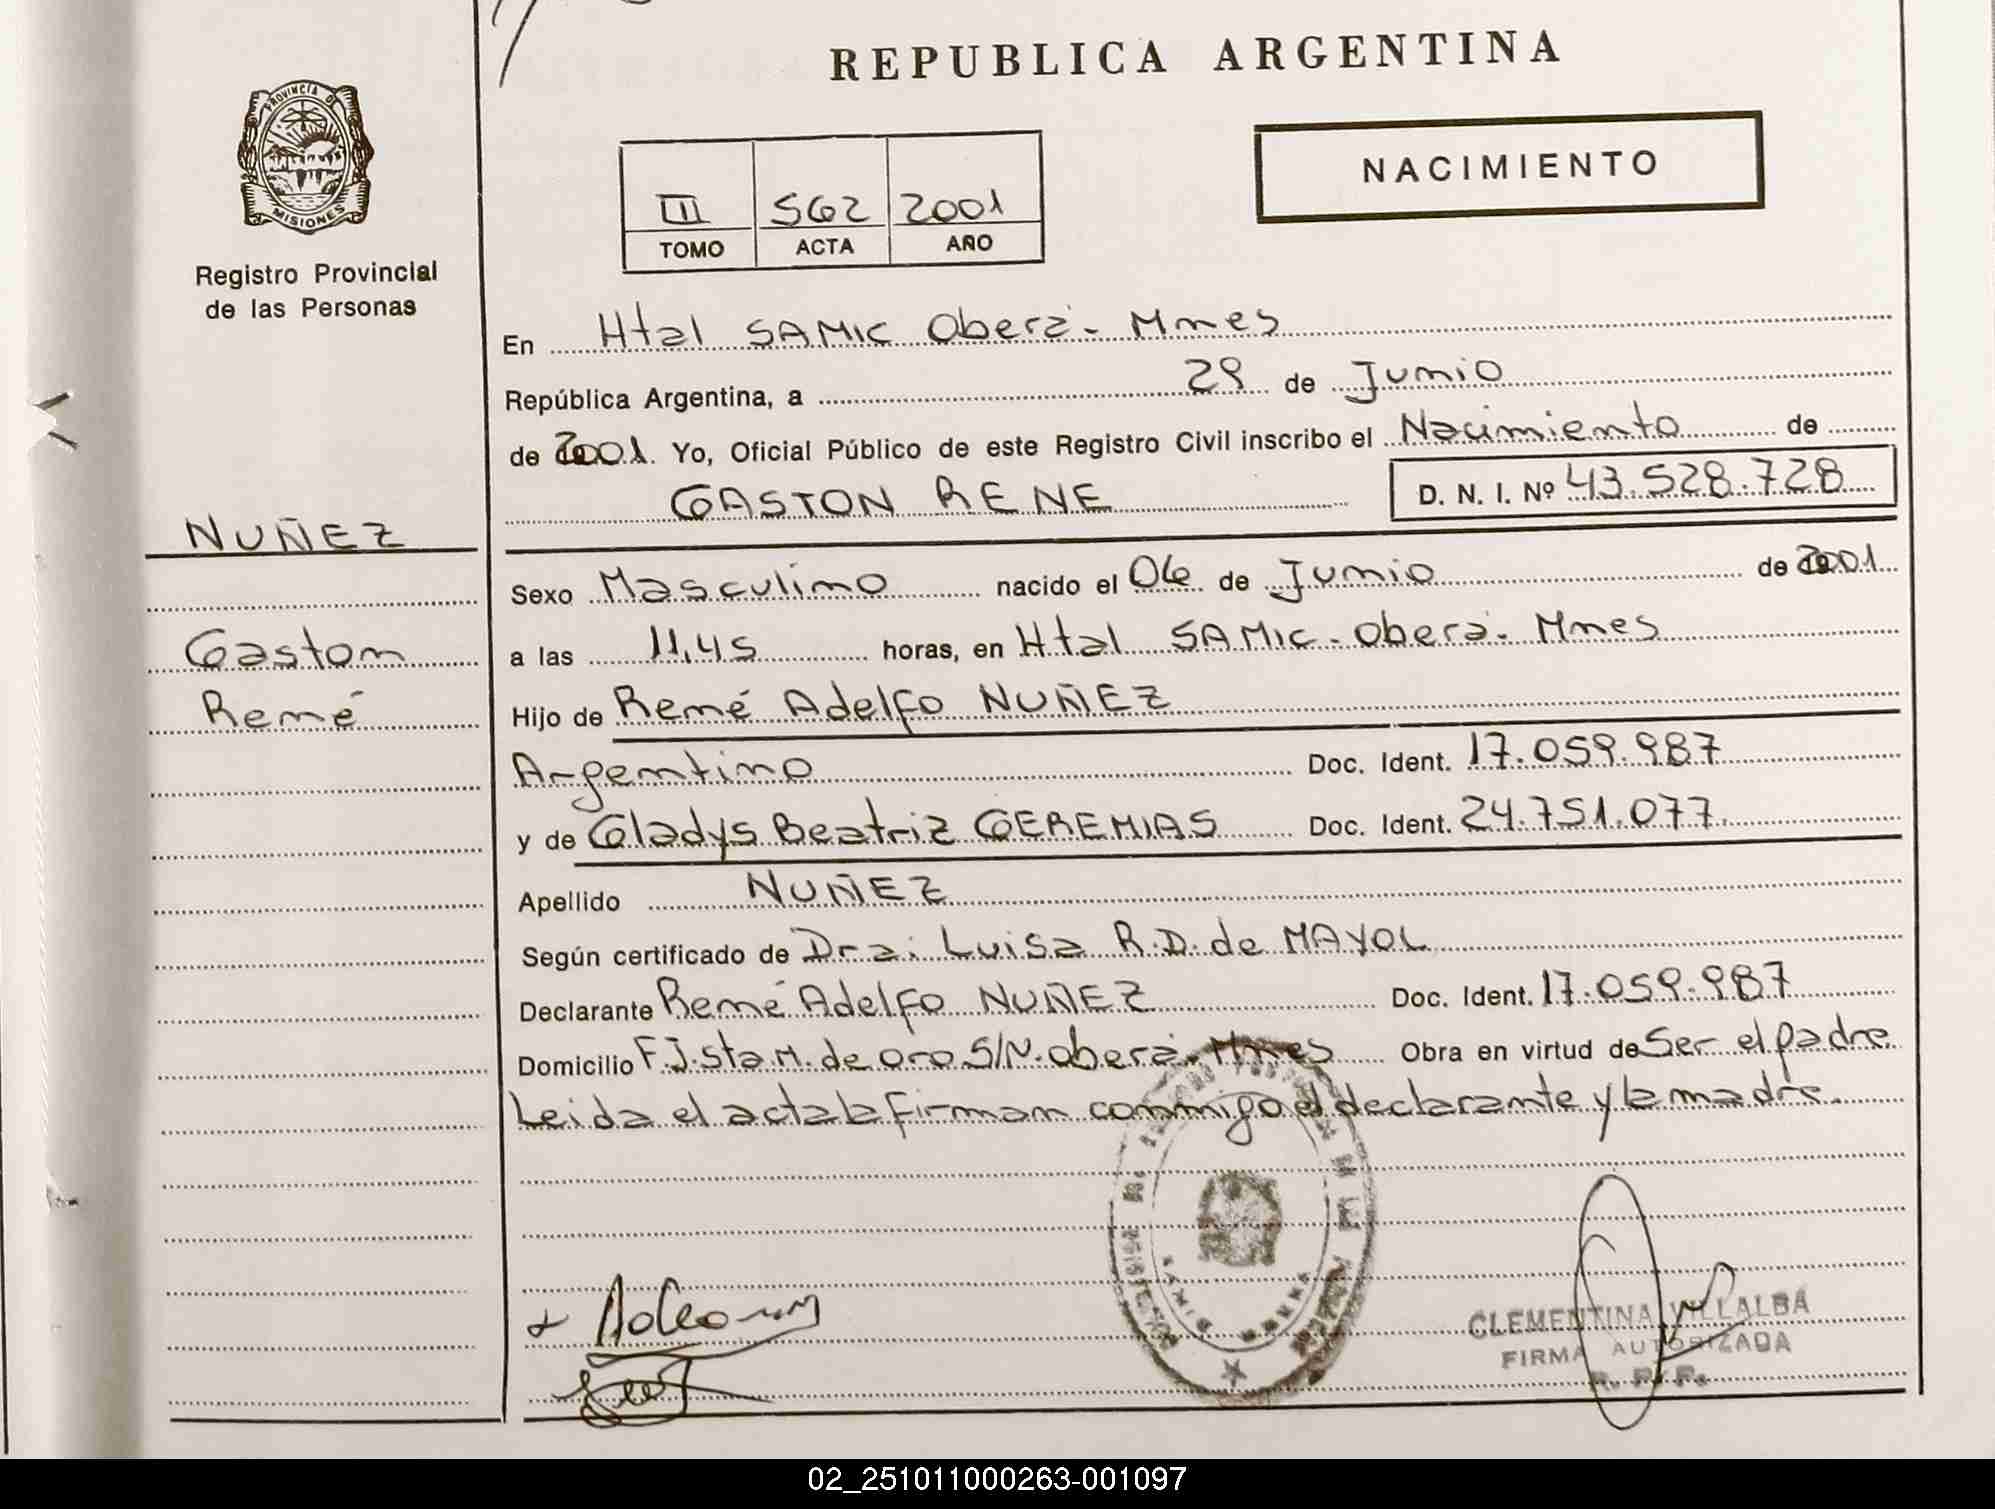 REPUBLICA ARGENTINA
PROVINCIA DE
MISIONES
Registro Provincial
de las Personas
III 562 2001
TOMO ACTA AÑO
NACIMIENTO
En Htal SAMIC Oberá - Mnes
República Argentina, a 29 de Junio
de 2001. Yo, Oficial Público de este Registro Civil inscribo el Nacimiento de
GASTON RENE D. N. I. Nº 43.528.728
NUÑEZ
Gaston
René
Sexo Masculino nacido el 06 de Junio de 2001
a las 11,45 horas, en Htal SAMIC - Oberá - Mnes
Hijo de René Adelfo NUÑEZ
Argentino Doc. Ident. 17.059.987
y de Gladys Beatriz GEREMIAS Doc. Ident. 24.751.077.
Apellido NUÑEZ
Según certificado de Dra: Luisa R.D. de MAYOL
Declarante René Adelfo NUÑEZ Doc. Ident. 17.059.987
Domicilio F.J. Sta. M. de oro S/N. Oberá - Mnes Obra en virtud de Ser el padre
Leida el acta la firman conmigo el declarante y la madre.
CLEMENTINA VILLALBA
FIRMA AUTORIZADA
R. P. P.
02_251011000263-001097